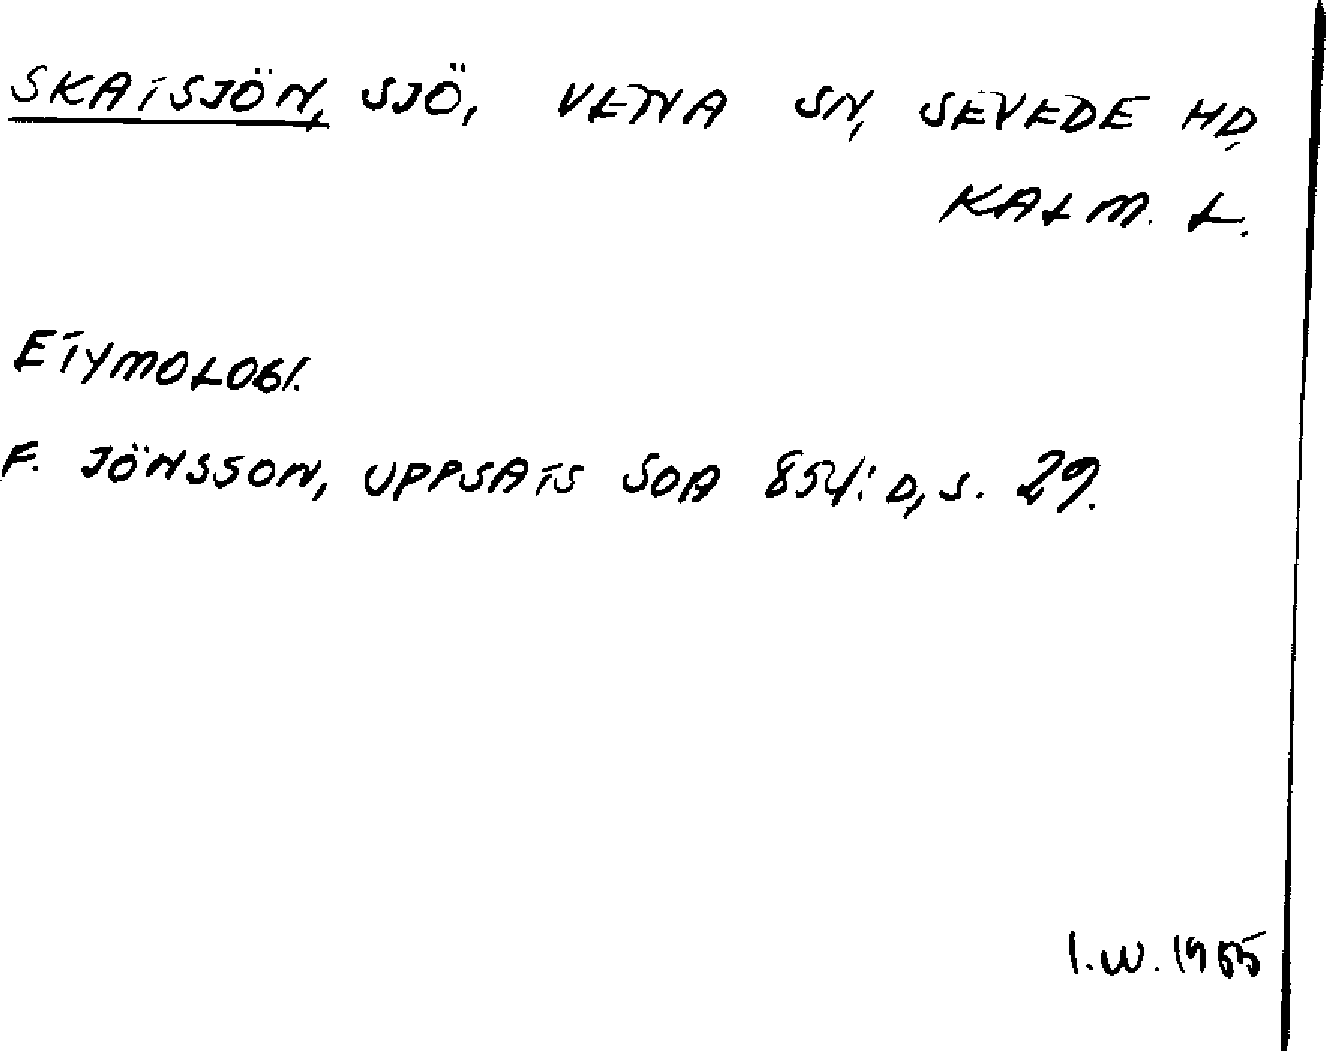 SKATSJÖN, SJÖ, VENA SN, SEVEDE HD,
KALM. L.
ETYMOLOGI.
F. JÖNSSON, UPPSATS SOA 854:D, S. 29.
I.W. 1965